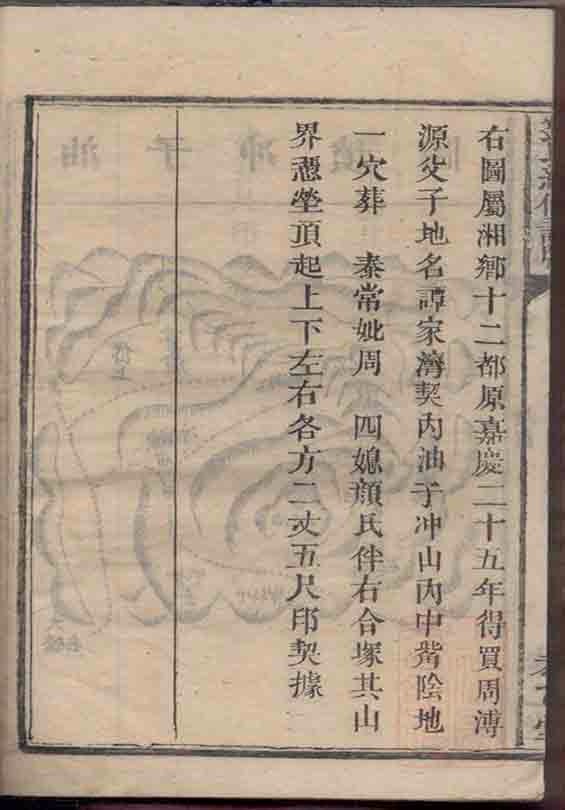 右圖屬湘鄉十二都原嘉慶二十五年得買周溥
源父子地名譚家灣契內油子冲山內中嘴陰地
一穴葬 泰常妣周 四媳顏氏伴右合塚其山
界憑塋頂起上下左右各方二丈五尺印契據